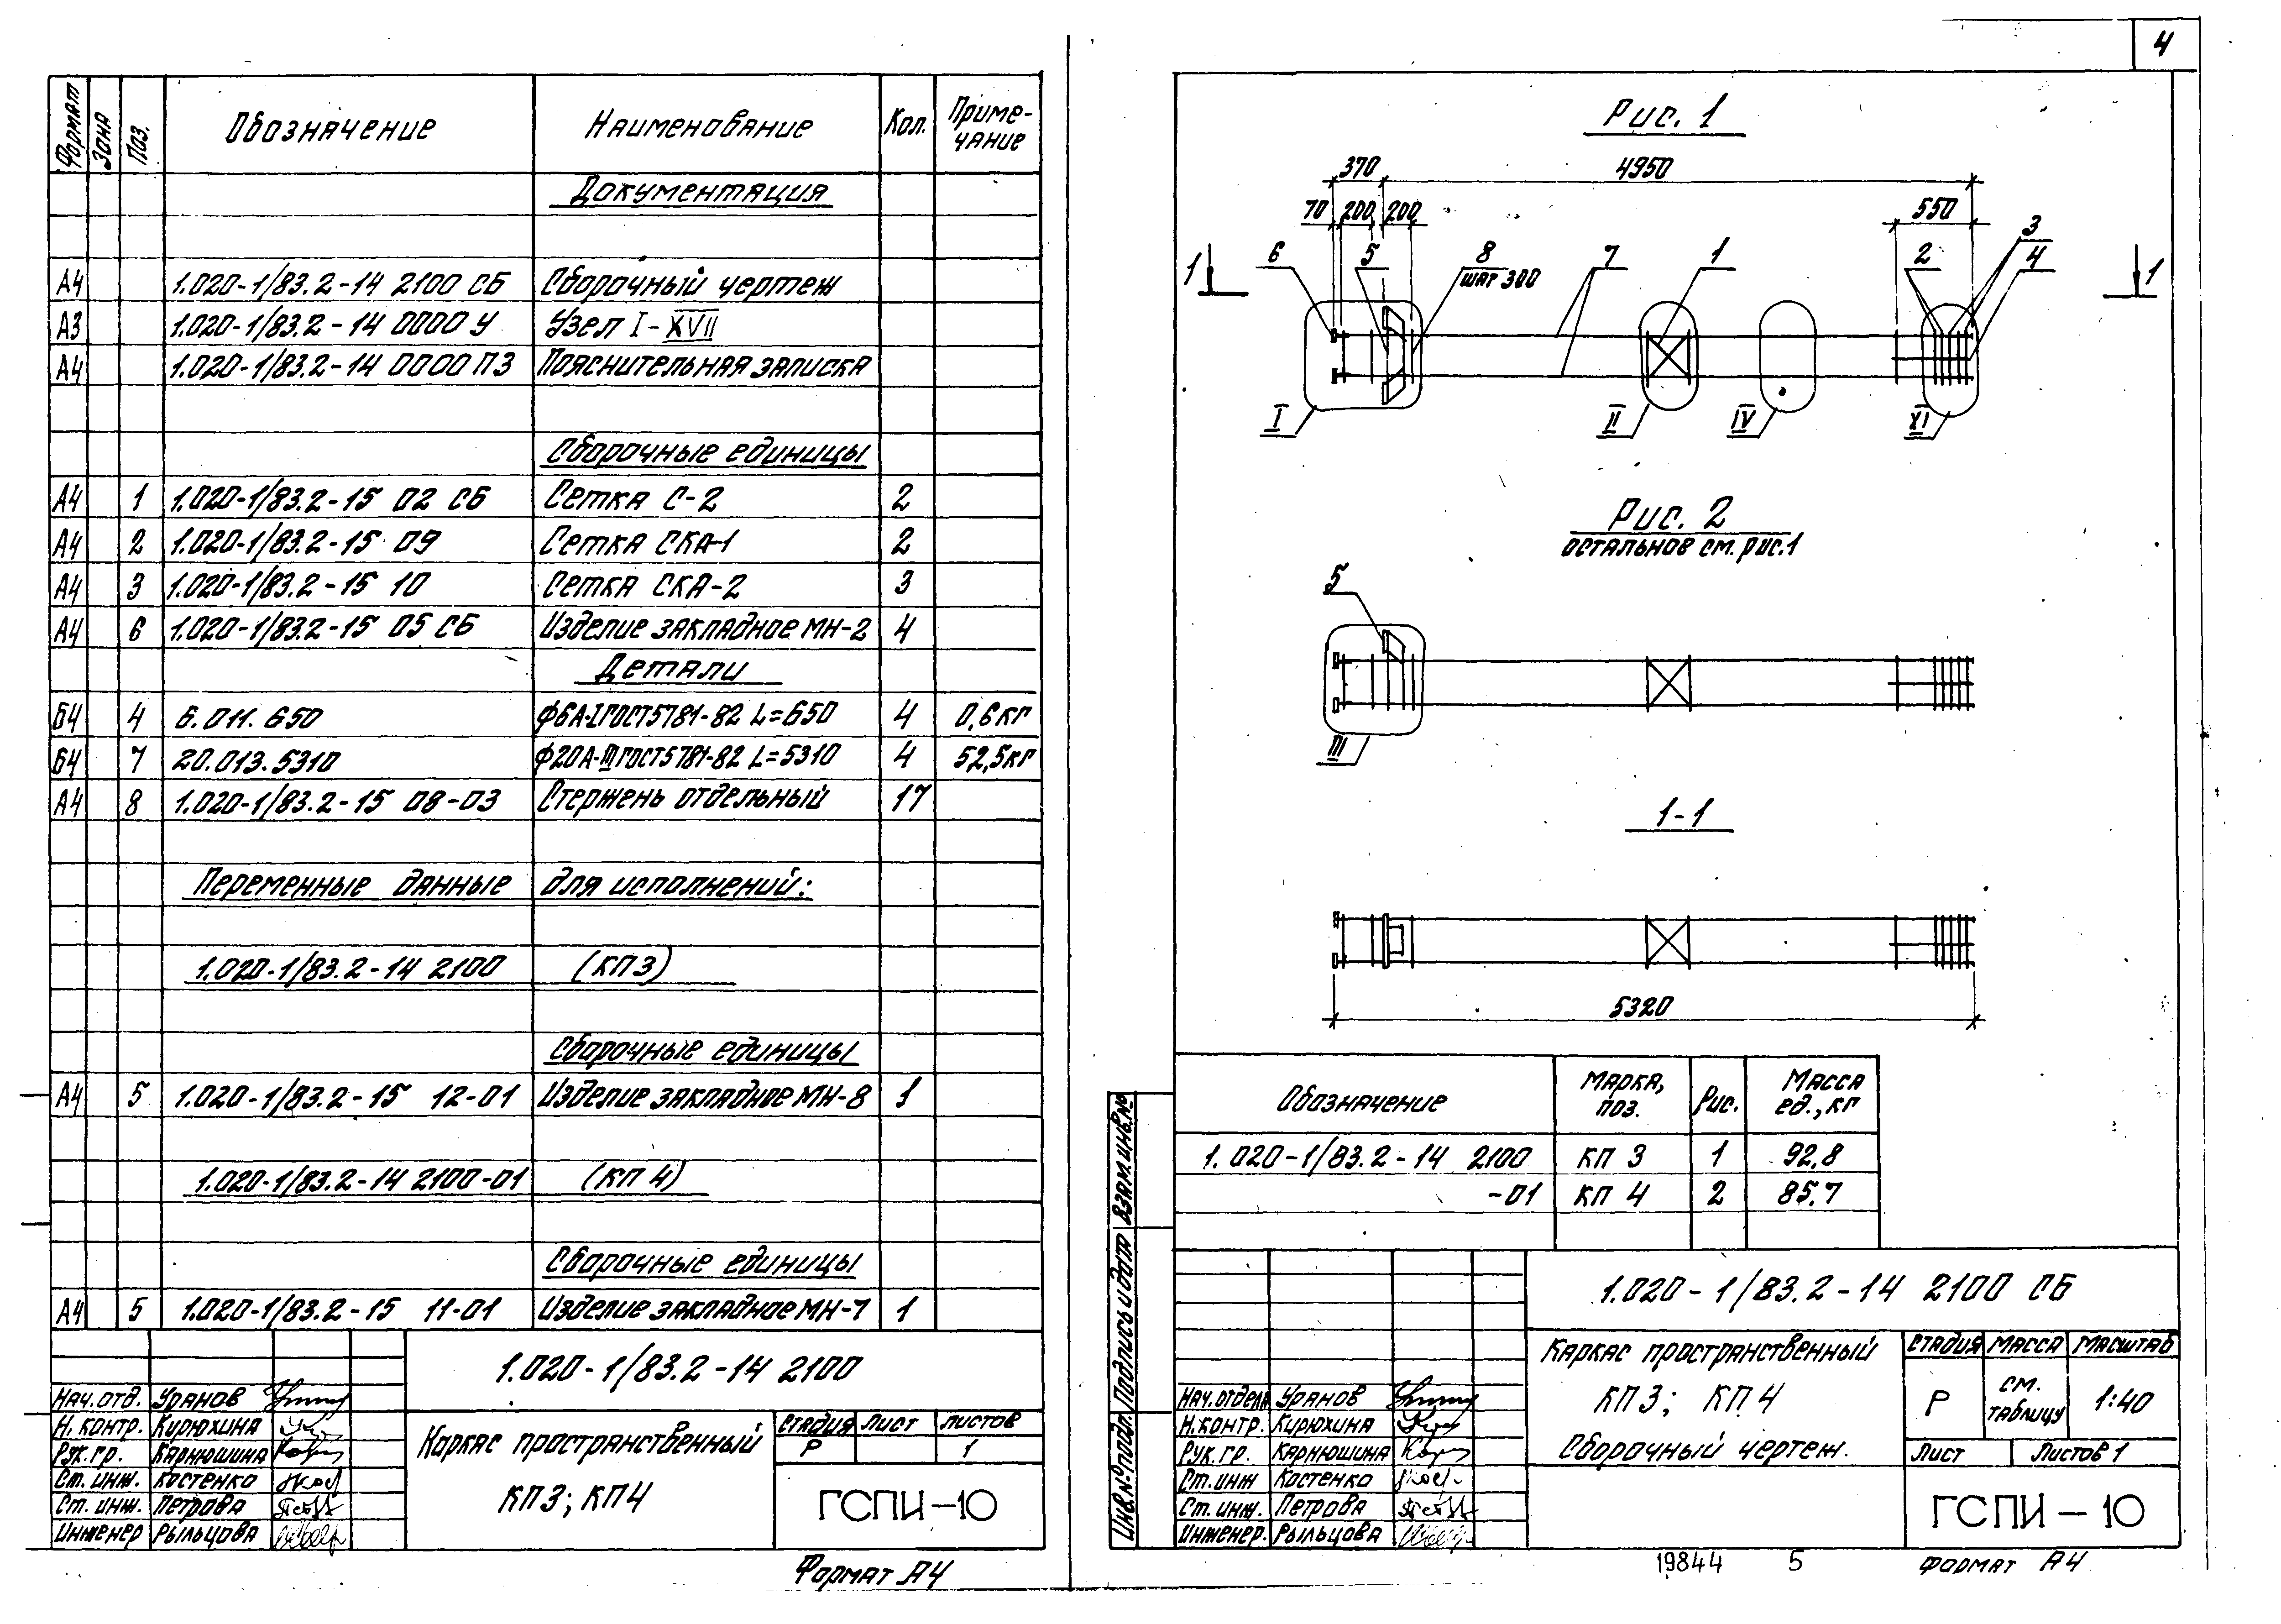 Формат Зона Поз. Обозначение Наименование Кол. Приме-
чание
Документация
А4 1.020-1/83.2-14 2100 СБ Сборочный чертеж
А3 1.020-1/83.2-14 0000 У Узел I-XVII
А4 1.020-1/83.2-14 0000 ПЗ Пояснительная записка
Сборочные единицы
А4 1 1.020-1/83.2-15 02 СБ Сетка С-2 2
А4 2 1.020-1/83.2-15 09 Сетка СКА-1 2
А4 3 1.020-1/83.2-15 10 Сетка СКА-2 3
А4 6 1.020-1/83.2-15 05 СБ Изделие закладное МН-2 4
Детали
Б4 4 6.011.650 ф6А-I ГОСТ 5781-82 L=650 4 0,6кг
Б4 7 20.013.5310 ф20А-III ГОСТ 5781-82 L=5310 4 52,5кг
А4 8 1.020-1/83.2-15 08-03 Стержень отдельный 17
Переменные данные для исполнений:
1.020-1/83.2-14 2100 (КП3)
Сборочные единицы
А4 5 1.020-1/83.2-15 12-01 Изделие закладное МН-8 1
1.020-1/83.2-14 2100-01 (КП 4)
Сборочные единицы
А4 5 1.020-1/83.2-15 11-01 Изделие закладное МН-7 1
1.020-1/83.2-14 2100
Нач.отд. Уранов
Н.контр. Кирюхина
Рук.гр. Карнюшина
Ст. инж. Костенко
Ст. инж. Петрова
Инженер Рыльцова
Каркас пространственный
КП3; КП4
Стадия Лист Листов
Р 1
ГСПИ-10
Формат А4
4
Рис. 1
370 4950
70 200 200 550
1 6 5 8 7 1 2 3 4 1
шаг 300
I II IV XI
Рис. 2
остальное см. рис.1
5
III
1-1
5320
Обозначение Марка, поз. Рис. Масса ед., кг
1.020-1/83.2-14 2100 КП 3 1 92,8
-01 КП 4 2 85,7
Инв.№ подл. Подпись и дата Взам.инв.№
1.020-1/83.2-14 2100 СБ
Нач.отдела Уранов
Н.контр. Кирюхина
Рук.гр. Карнюшина
Ст.инж Костенко
Ст.инж. Петрова
Инженер. Рыльцова
Каркас пространственный
КП3; КП4
Сборочный чертеж.
Стадия Масса Масштаб
Р см. таблицу 1:40
Лист Листов 1
ГСПИ-10
19844 5 Формат А4